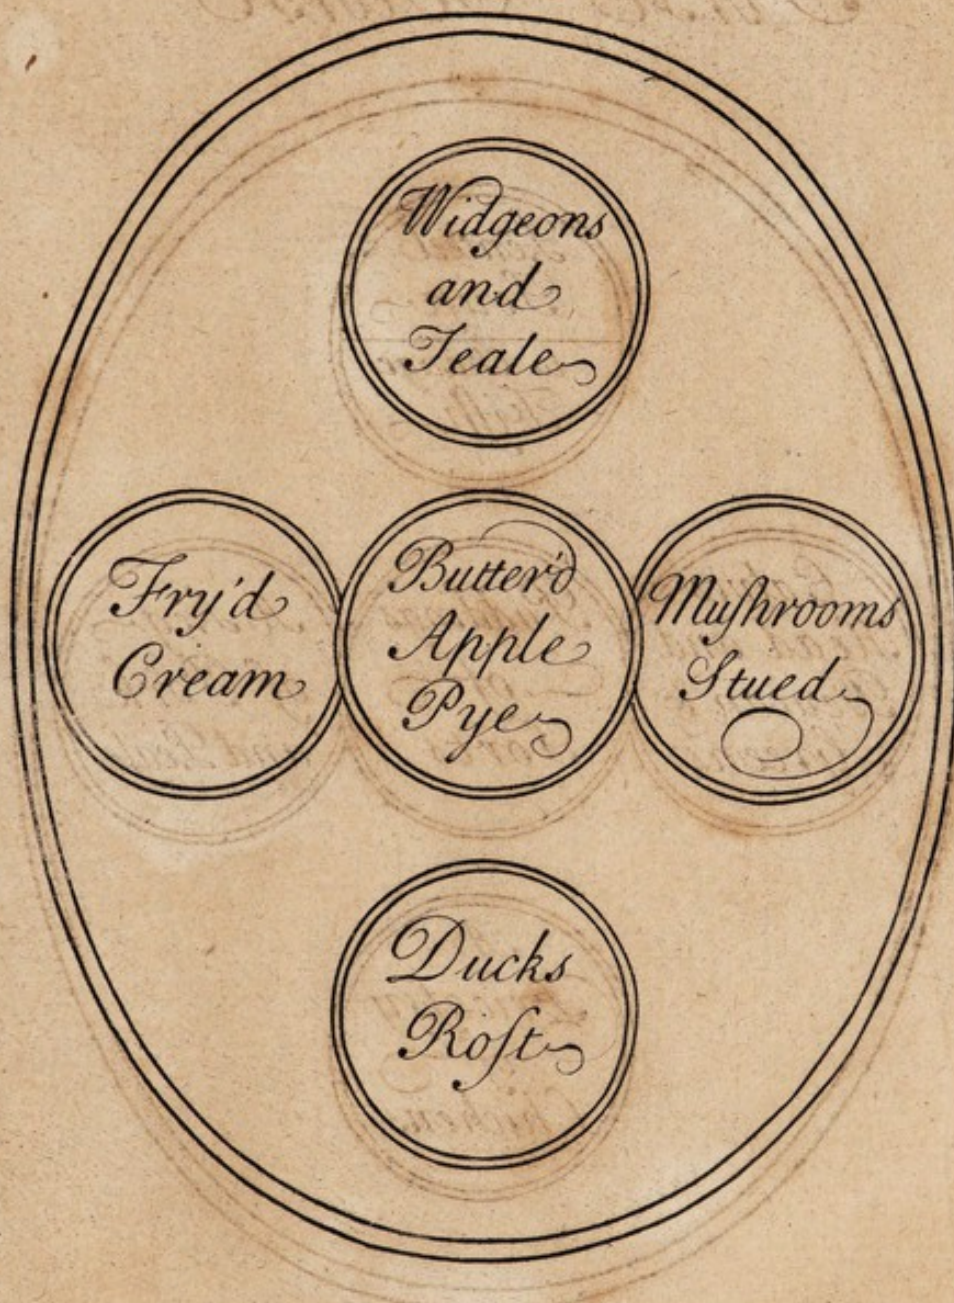 Widgeons
and
Teale
Fry'd
Cream
Butter'd
Apple
Pye
Muſhrooms
Stued
Ducks
Roſt